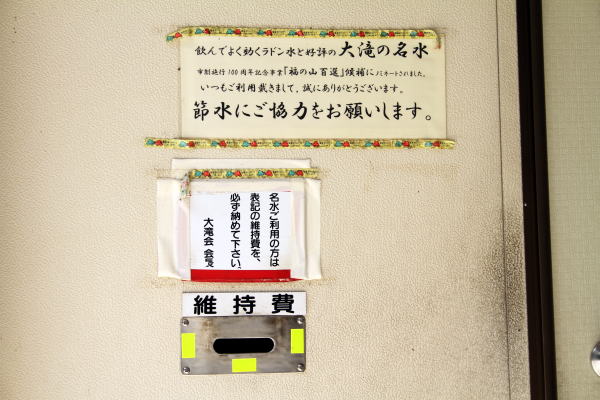 飲んでよく効くラドン水と好評の大滝の名水
市制施行100周年記念事業「福の山百選」候補にノミネートされました。
いつもご利用戴きまして、誠にありがとうございます。
節水にご協力をお願いします。
名水ご利用の方は
表記の維持費を、
必ず納めて下さい。
大滝会 会長
維持費